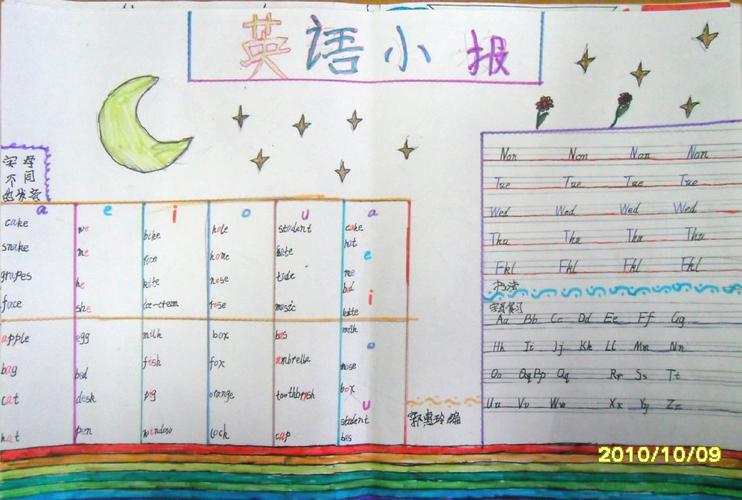 英语小报
字母
不同
的发音
a e i o u a
cake
snake
grapes
face
we
me
he
she
bike
rice
kite
ice-cream
hole
home
nose
rose
student
tide
music
cake
hat
e
me
bed
i
kite
milk
o
nose
box
u
student
bus
apple
bag
cat
hat
egg
bed
desk
pen
milk
fish
pig
window
box
fox
orange
lock
bus
umbrella
toothbrush
cap
Non Non Non Non
Tue Tue Tue Tue
Wed Wed Wed Wed
Thu Thu Thu Thu
Fkl Fkl Fkl Fkl
书法
字母复习
Aa Bb Cc Dd Ee Ff Gg
Hh Ii Jj Kk Ll Mm Nn
Oo Qq Pp Qq Rr Ss Tt
Uu Vv Ww Xx Yy Zz
2010/10/09